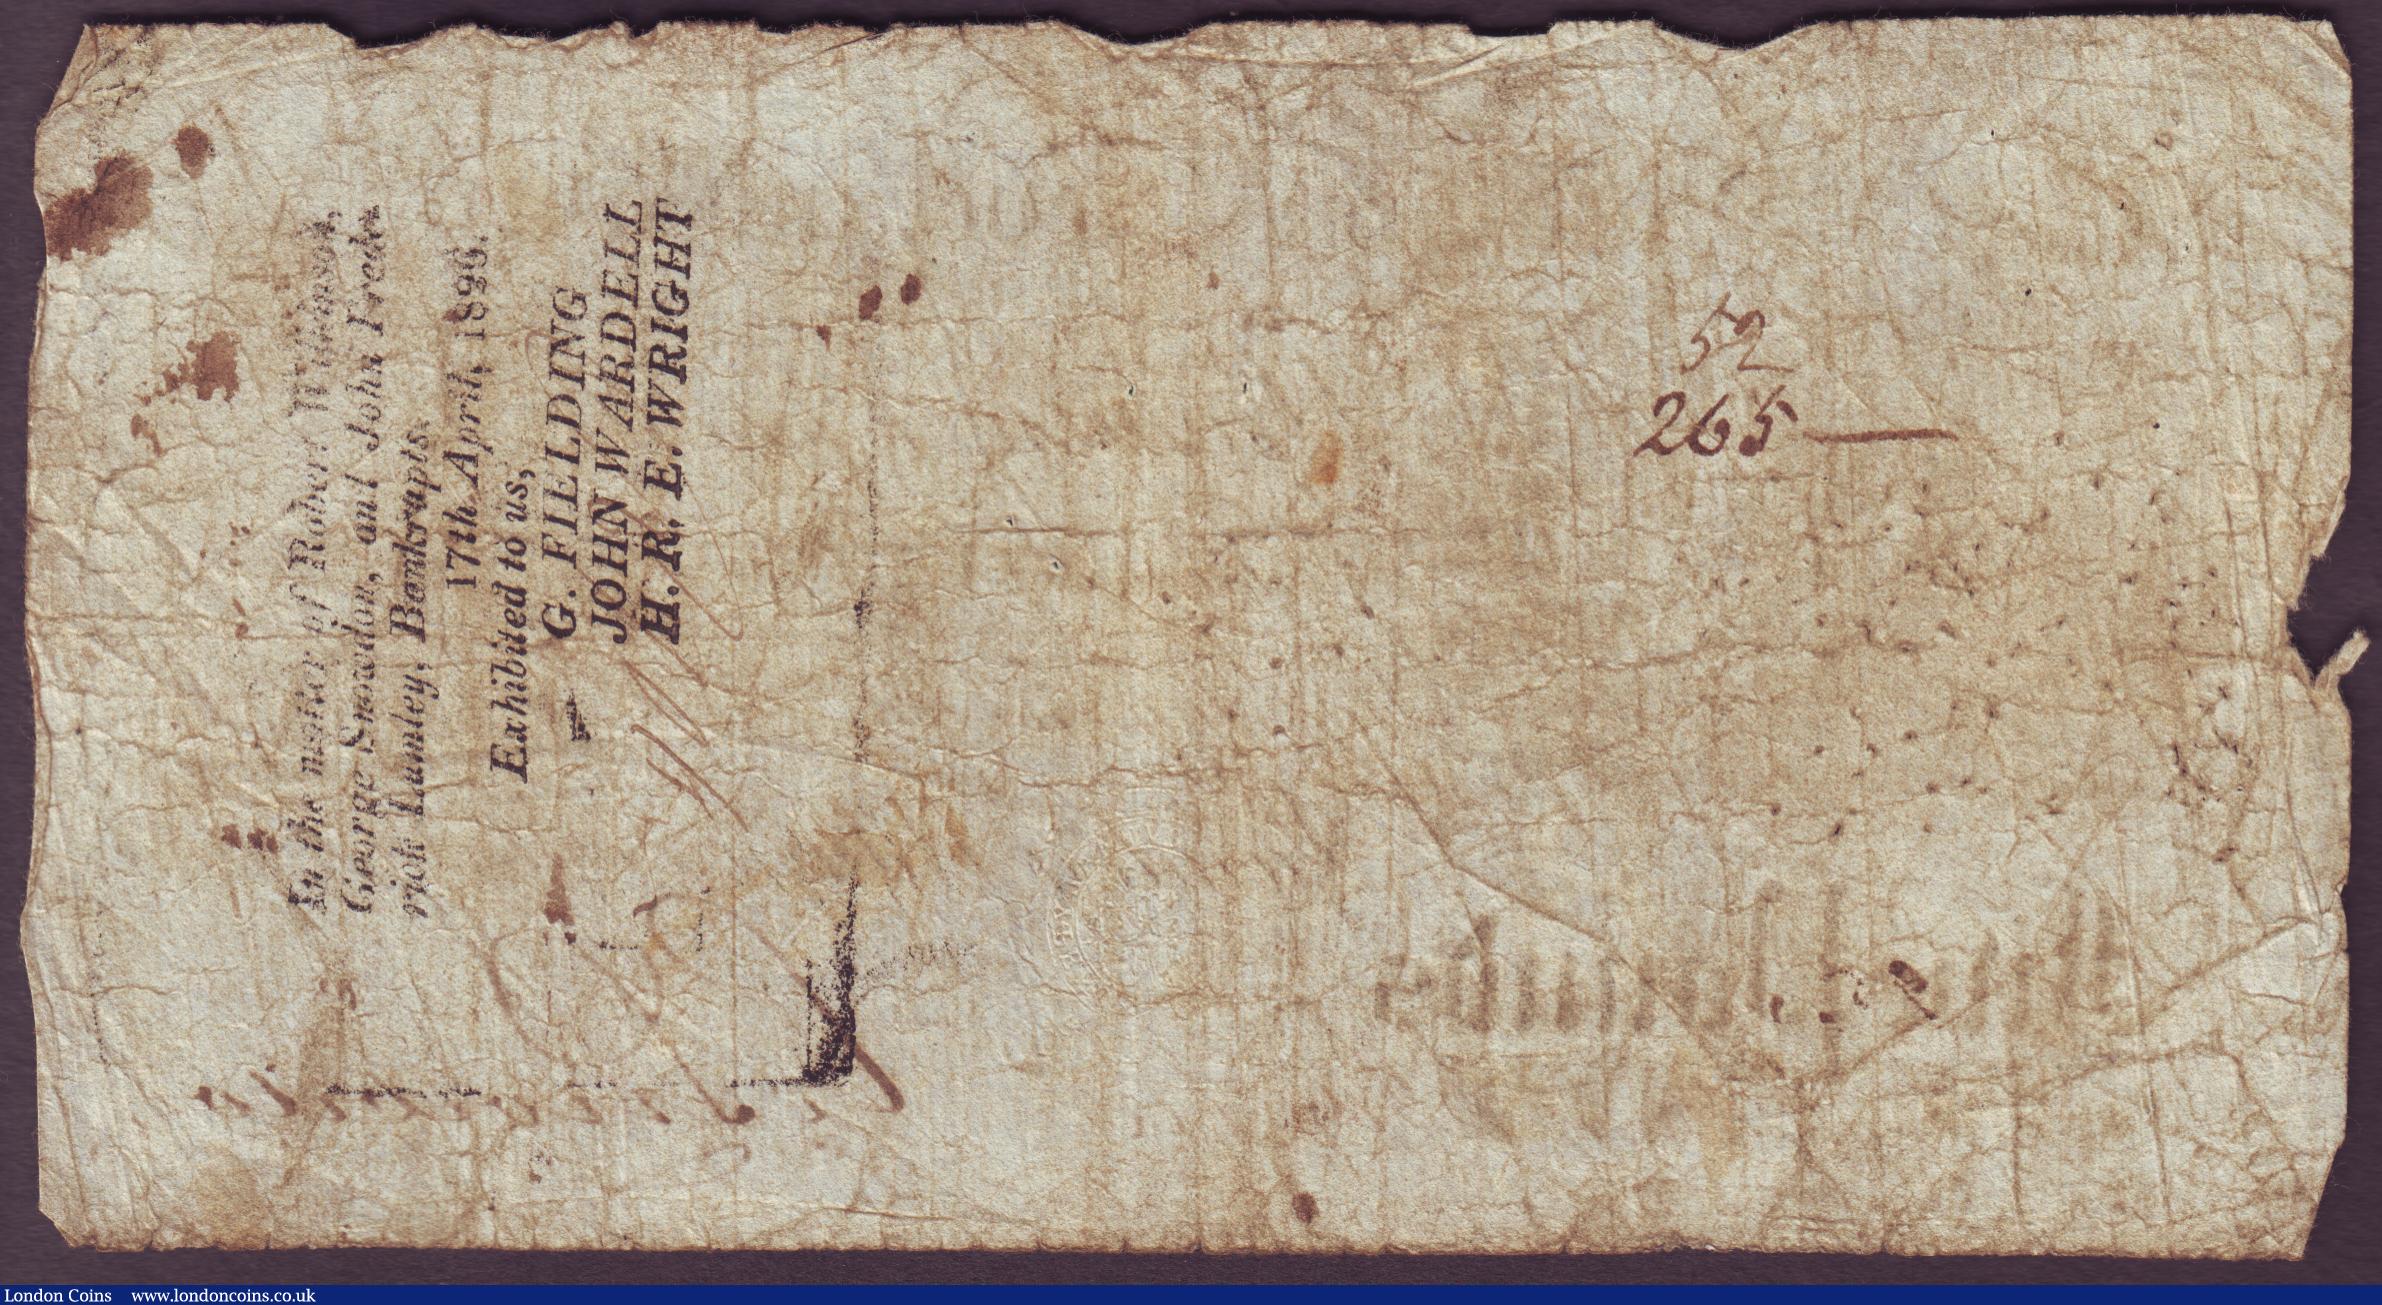 In the matter of Robert Wilkinson,
George Snowdon, and John Frede-
rick Lumley, Bankrupts.
17th April, 1826.
Exhibited to us,
G. FIELDING
JOHN WARDELL
H. R. E. WRIGHT
52
265 —
London Coins www.londoncoins.co.uk